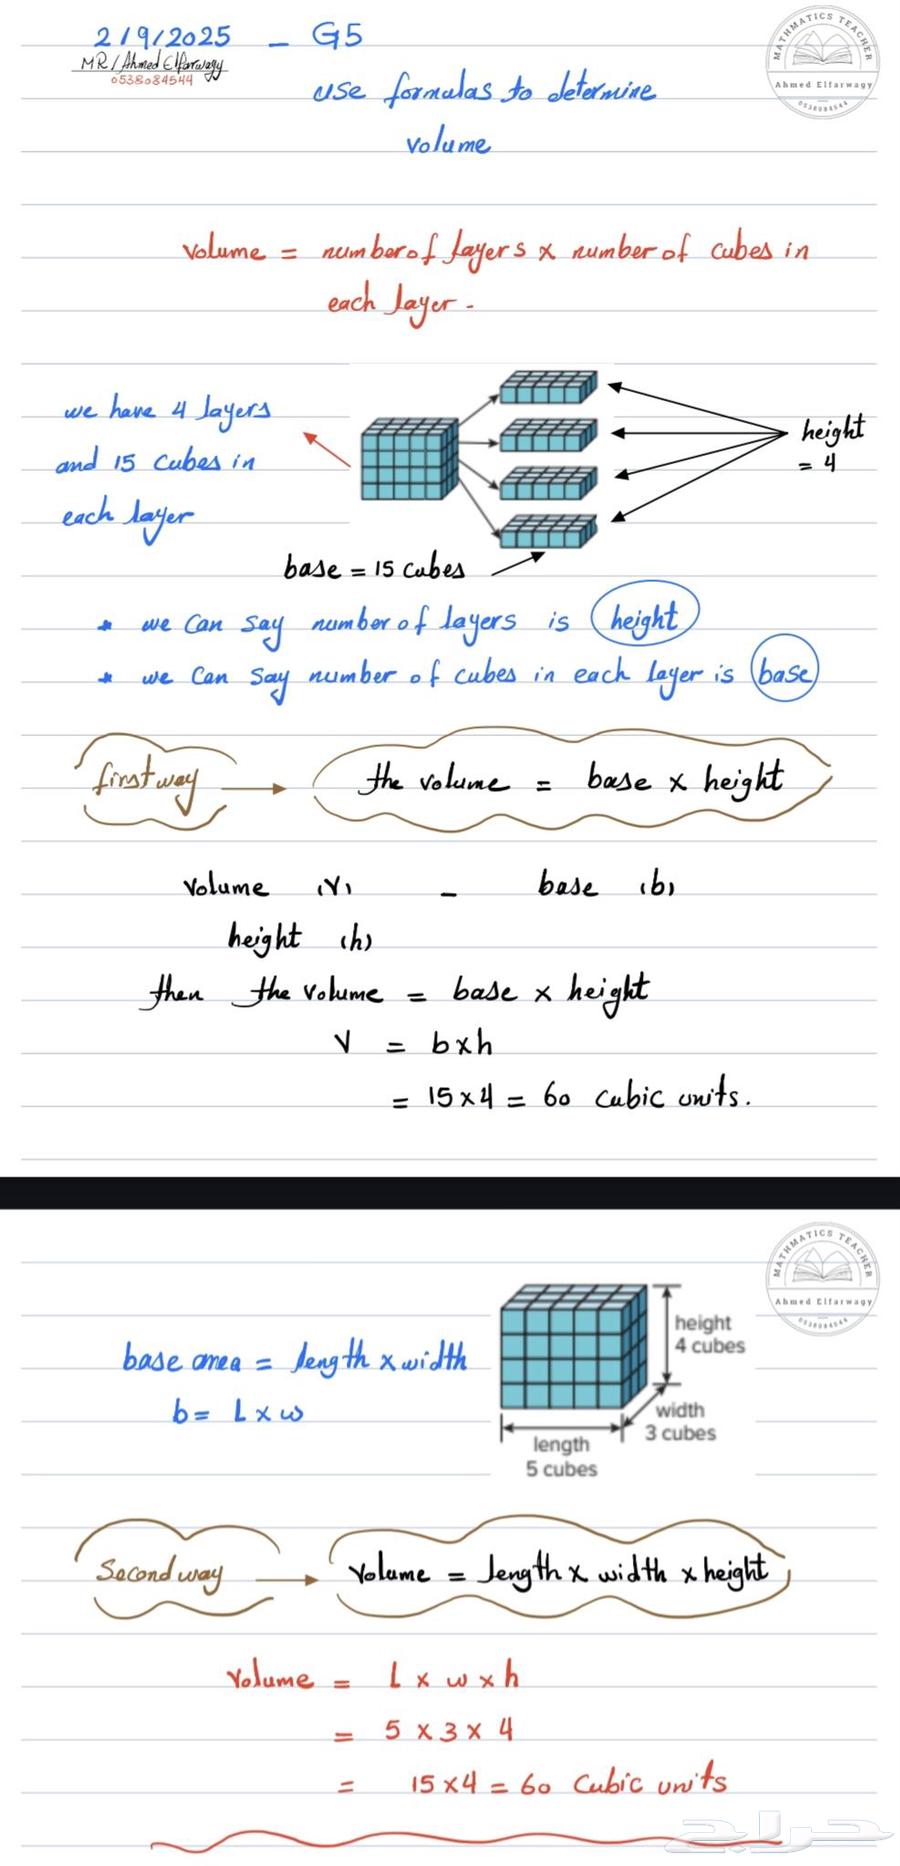 2/9/2025 - G5
MR/Ahmed Elfarwagy
0538084544
MATHMATICS TEACHER
Ahmed Elfarwagy
0538084544
use formulas to determine
volume
volume = number of layers × number of cubes in
each layer.
we have 4 layers
and 15 cubes in
each layer
height
= 4
base = 15 cubes
* we can say number of layers is height
* we can say number of cubes in each layer is base
first way → the volume = base × height
volume (V) - base (b)
height (h)
then the volume = base × height
V = b×h
= 15×4 = 60 cubic units.
MATHMATICS TEACHER
Ahmed Elfarwagy
0538084544
height
4 cubes
base area = length × width
b = L × w
width
3 cubes
length
5 cubes
Second way → Volume = length × width × height
Volume = L × w × h
= 5 × 3 × 4
= 15×4 = 60 Cubic units
حراج